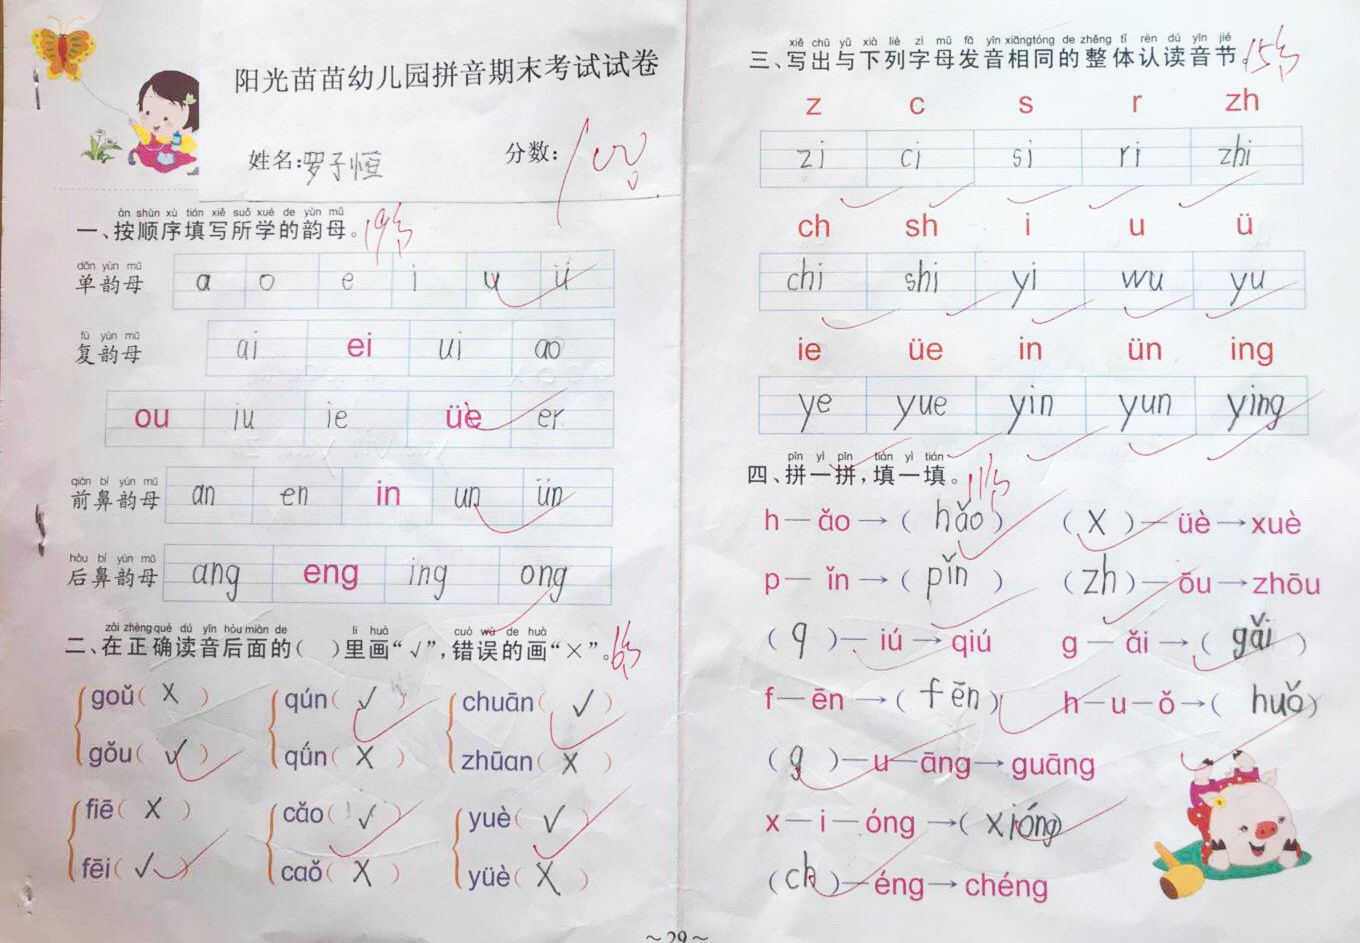 阳光苗苗幼儿园拼音期末考试试卷
姓名:罗子恒 分数:100
àn shùn xù tián xiě suǒ xué de yùn mǔ
一、按顺序填写所学的韵母。19分
dān yùn mǔ
单韵母 a o e i u ü
fù yùn mǔ
复韵母 ai ei ui ao
ou iu ie üe er
qián bí yùn mǔ
前鼻韵母 an en in un ün
hòu bí yùn mǔ
后鼻韵母 ang eng ing ong
zài zhèng què dú yīn hòu miàn de lǐ huà cuò wù de huà
二、在正确读音后面的( )里画“√”,错误的画“×”。
goǔ( X ) qún( √ ) chuān( √ )
gǒu( √ ) qǘn( X ) zhūan( X )
fiē( X ) cǎo( √ ) yuè( √ )
fēi( √ ) caǒ( X ) yüè( X )
xiě chū yǔ xià liè zì mǔ fā yīn xiāngtóng de zhěng tǐ rèn dú yīn jié
三、写出与下列字母发音相同的整体认读音节。15分
z c s r zh
zi ci si ri zhi
ch sh i u ü
chi shi yi wu yu
ie üe in ün ing
ye yue yin yun ying
pīn yì pīn tián yì tián
四、拼一拼,填一填。11分
h—ǎo→( hǎo ) ( x )—üè→xuè
p—ǐn→( pǐn ) ( zh )—ōu→zhōu
( q )—iú→qiú g—ǎi→( gǎi )
f—ēn→( fēn ) h—u—ǒ→( huǒ )
( g )—u—āng→guāng
x—i—óng→( xióng )
( ch )—éng→chéng
~29~